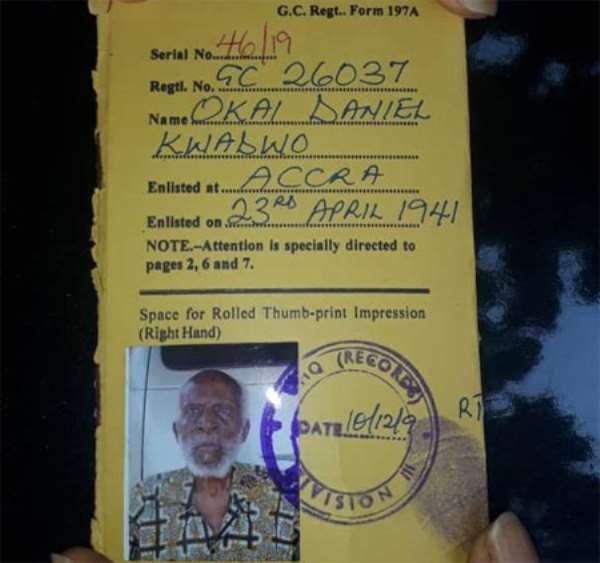 G.C. Regt.. Form 197A
Serial No. 46/19
Regtl. No. GC 26037
Name OKAI DANIEL
KWADWO
Enlisted at ACCRA
Enlisted on 23RD APRIL 1941
NOTE.–Attention is specially directed to
pages 2, 6 and 7.
Space for Rolled Thumb-print Impression
(Right Hand)
HQ (RECORDS)
DATE 10/12/9
DIVISION III